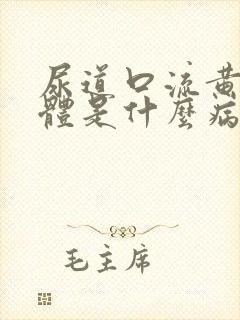 尿道口流黄
體是什麼病
毛主席